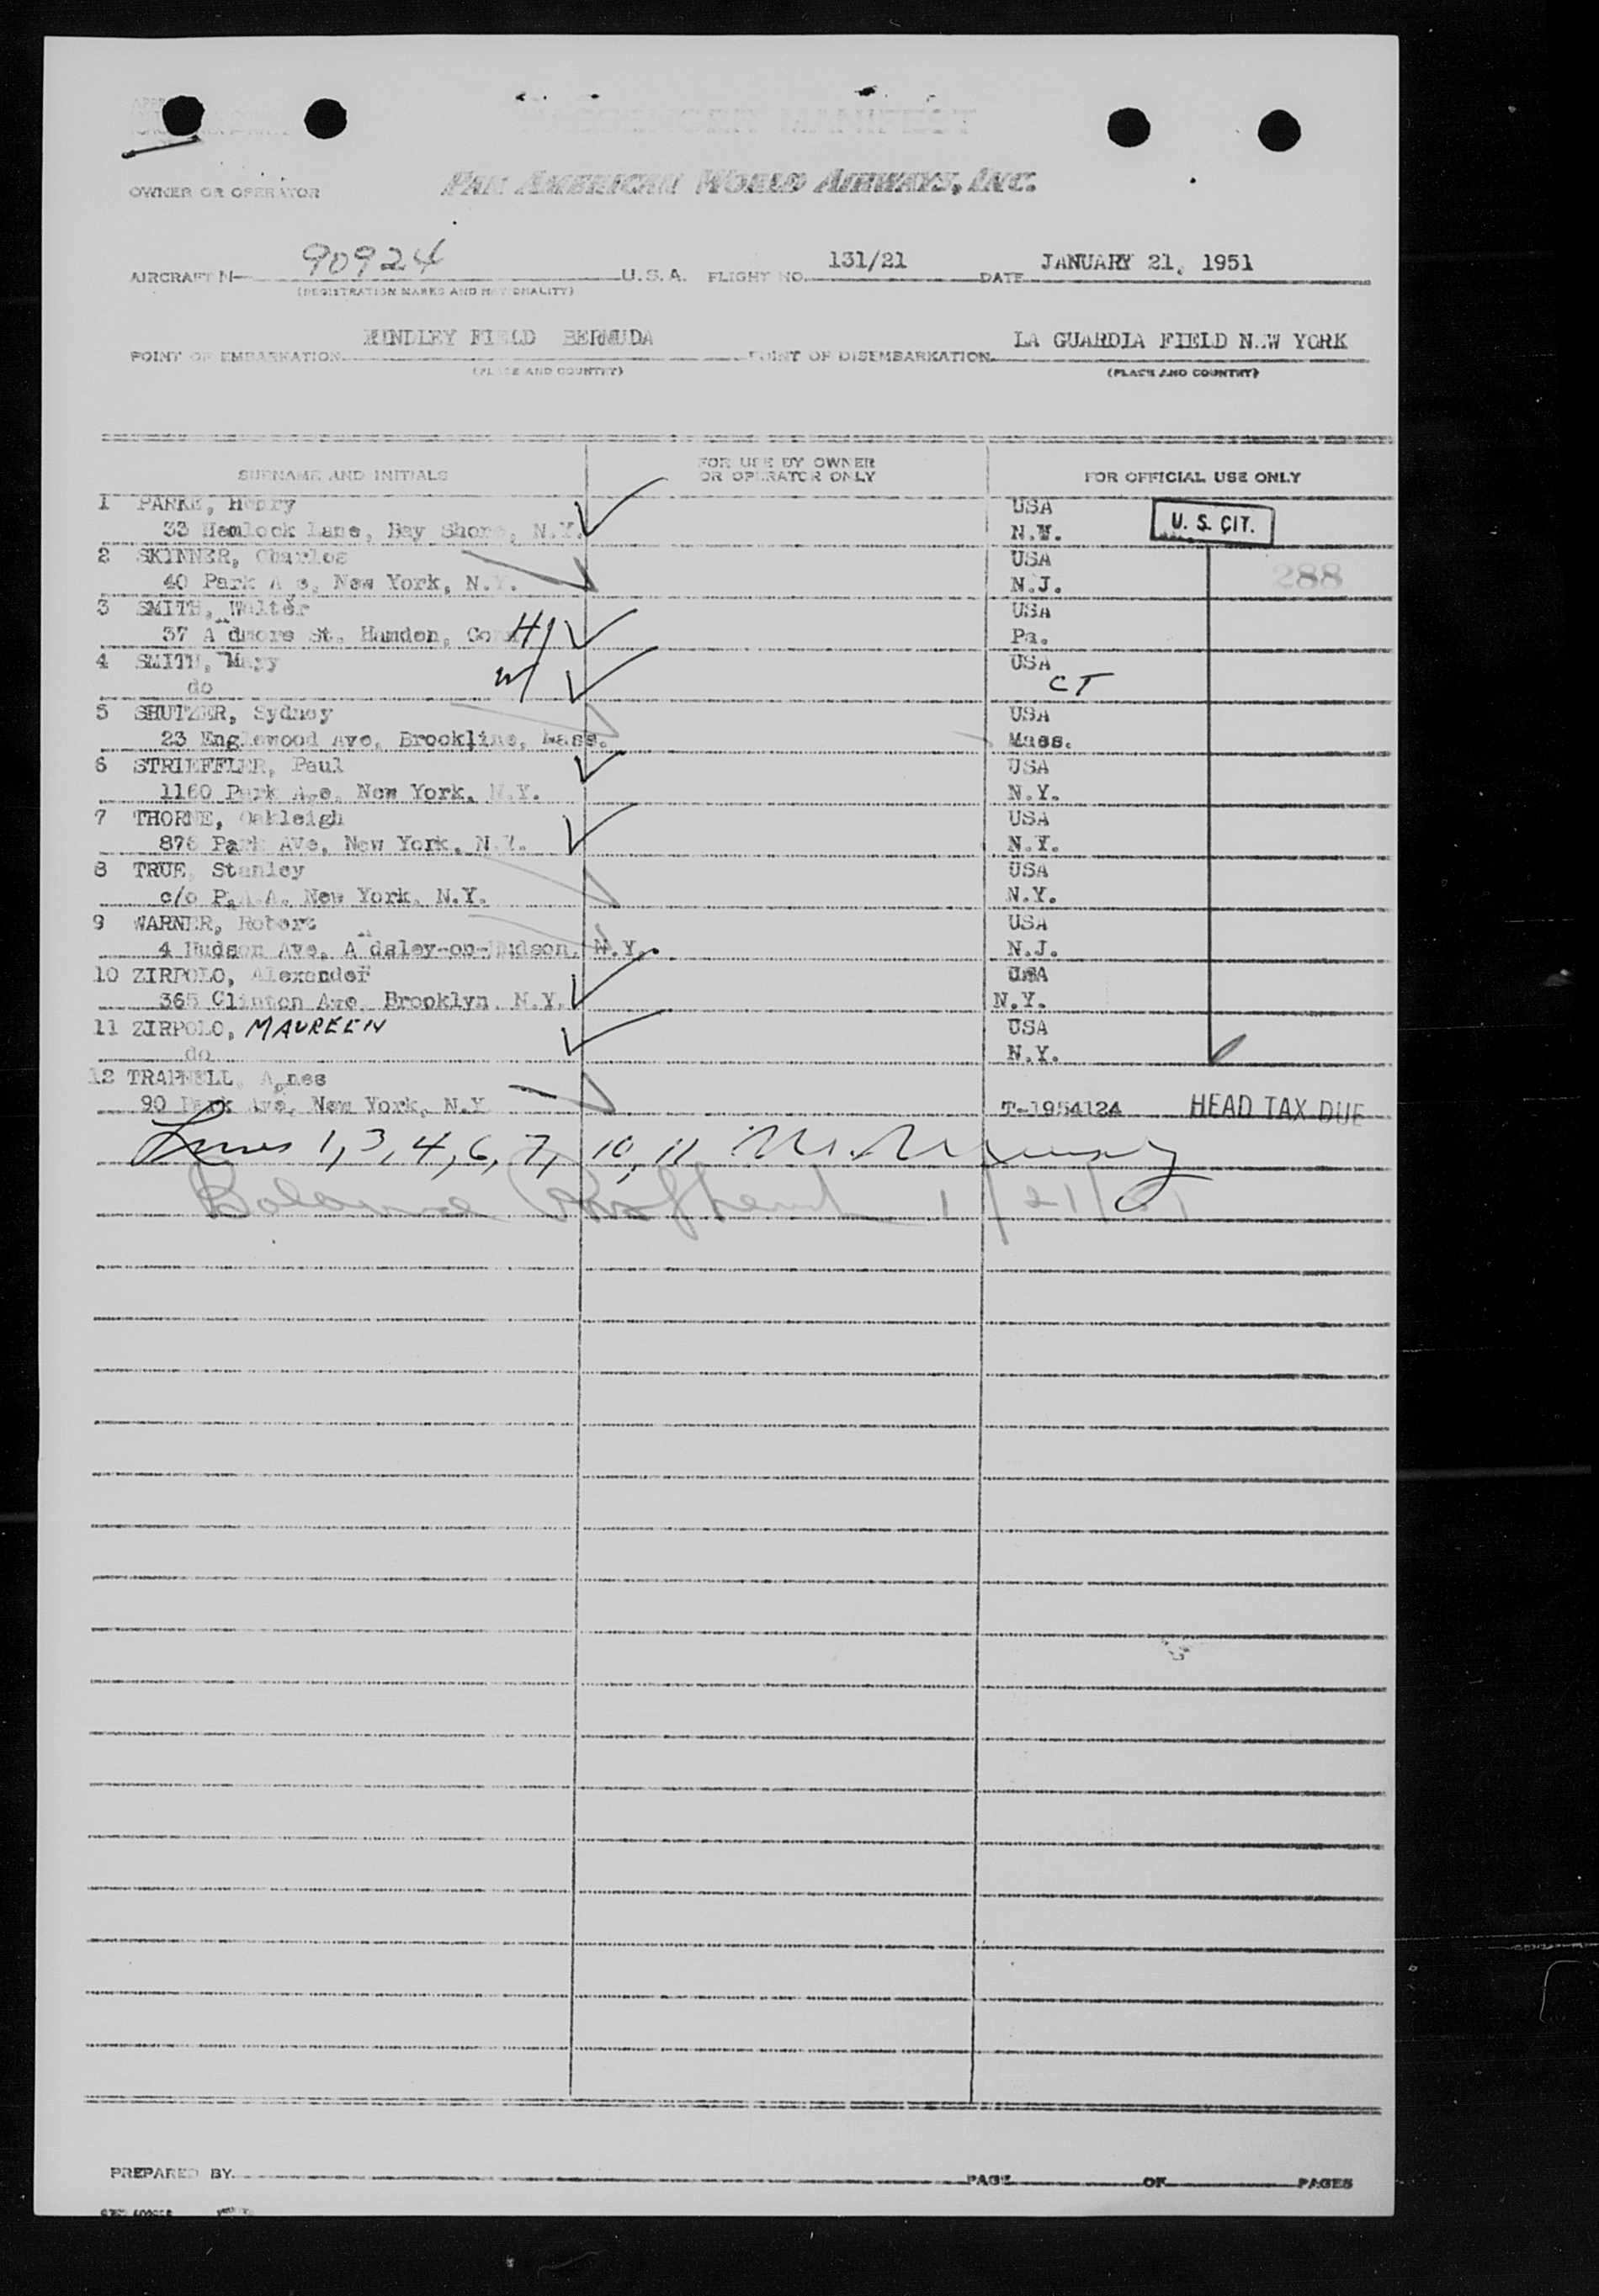 PASSENGER MANIFEST
OWNER OR OPERATOR PAN AMERICAN WORLD AIRWAYS, INC.
AIRCRAFT N- 90924 U.S.A. FLIGHT NO. 131/21 DATE JANUARY 21, 1951
(REGISTRATION MARKS AND NATIONALITY)
POINT OF EMBARKATION KINDLEY FIELD BERMUDA POINT OF DISEMBARKATION LA GUARDIA FIELD N.W YORK
(PLACE AND COUNTRY) (PLACE AND COUNTRY)
SURNAME AND INITIALS FOR USE BY OWNER OR OPERATOR ONLY FOR OFFICIAL USE ONLY
1 PARKE, Henry USA
33 Hemlock Lane, Bay Shore, N.Y. N.Y. U. S. CIT.
2 SKINNER, Charles USA
40 Park A e, New York, N.Y. N.J. 288
3 SMITH, Walter USA
37 A dmore St. Hamden, Conn H/ Pa.
4 SMITH, Mary USA
do W/ CT
5 SHUTZER, Sydney USA
23 Englewood Ave, Brookline, Mass. Mass.
6 STRIEFFLER, Paul USA
1160 Park Ave, New York, N.Y. N.Y.
7 THORNE, Oakleigh USA
876 Park AVe, New York, N.Y. N.Y.
8 TRUE, Stanley USA
c/o P.A.A. New York, N.Y. N.Y.
9 WARNER, Robert USA
4 Hudson Ave, A dsley-on-Hudson, N.Y. N.J.
10 ZIRPOLO, Alexander USA
365 Clinton Ave, Brooklyn, N.Y. N.Y.
11 ZIRPOLO, MAUREEN USA
do N.Y.
12 TRAPNELL, Agnes
90 Park Ave, New York, N.Y T-1954124 HEAD TAX DUE
Lines 1, 3, 4, 6, 7, 10, 11
Balance 1/21/51
PREPARED BY PAGE OF PAGES